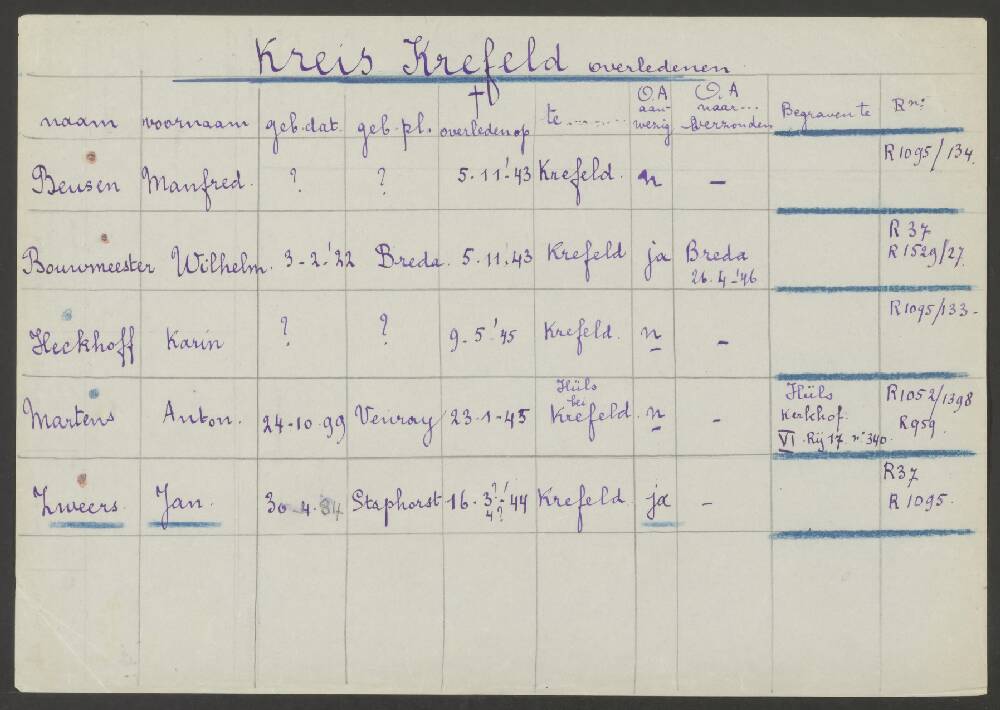 Kreis Krefeld overledenen
naam voornaam geb. dat. geb. pl. overleden op te ......... O.A aanwezig O.A naar... verzonden Begraven te R nr:
Beusen Manfred. ? ? 5-11-'43 Krefeld. n – R1095/134.
Bouwmeester Wilhelm. 3-2-'22 Breda. 5-11-'43 Krefeld ja Breda 26-4-'46 R 37 R1529/27.
Heckhoff Karin ? ? 9-5-'45 Krefeld. n – R1095/133-
Martens Anton. 24-10-99 Venray 23-1-45 Hüls bei Krefeld. n - Hüls Kerkhof. VI Rij 17 nr 340. R1052/1398 R959
Zweers Jan. 30-4-84 Staphorst 16-3?-'44 4? Krefeld ja - R37 R1095.